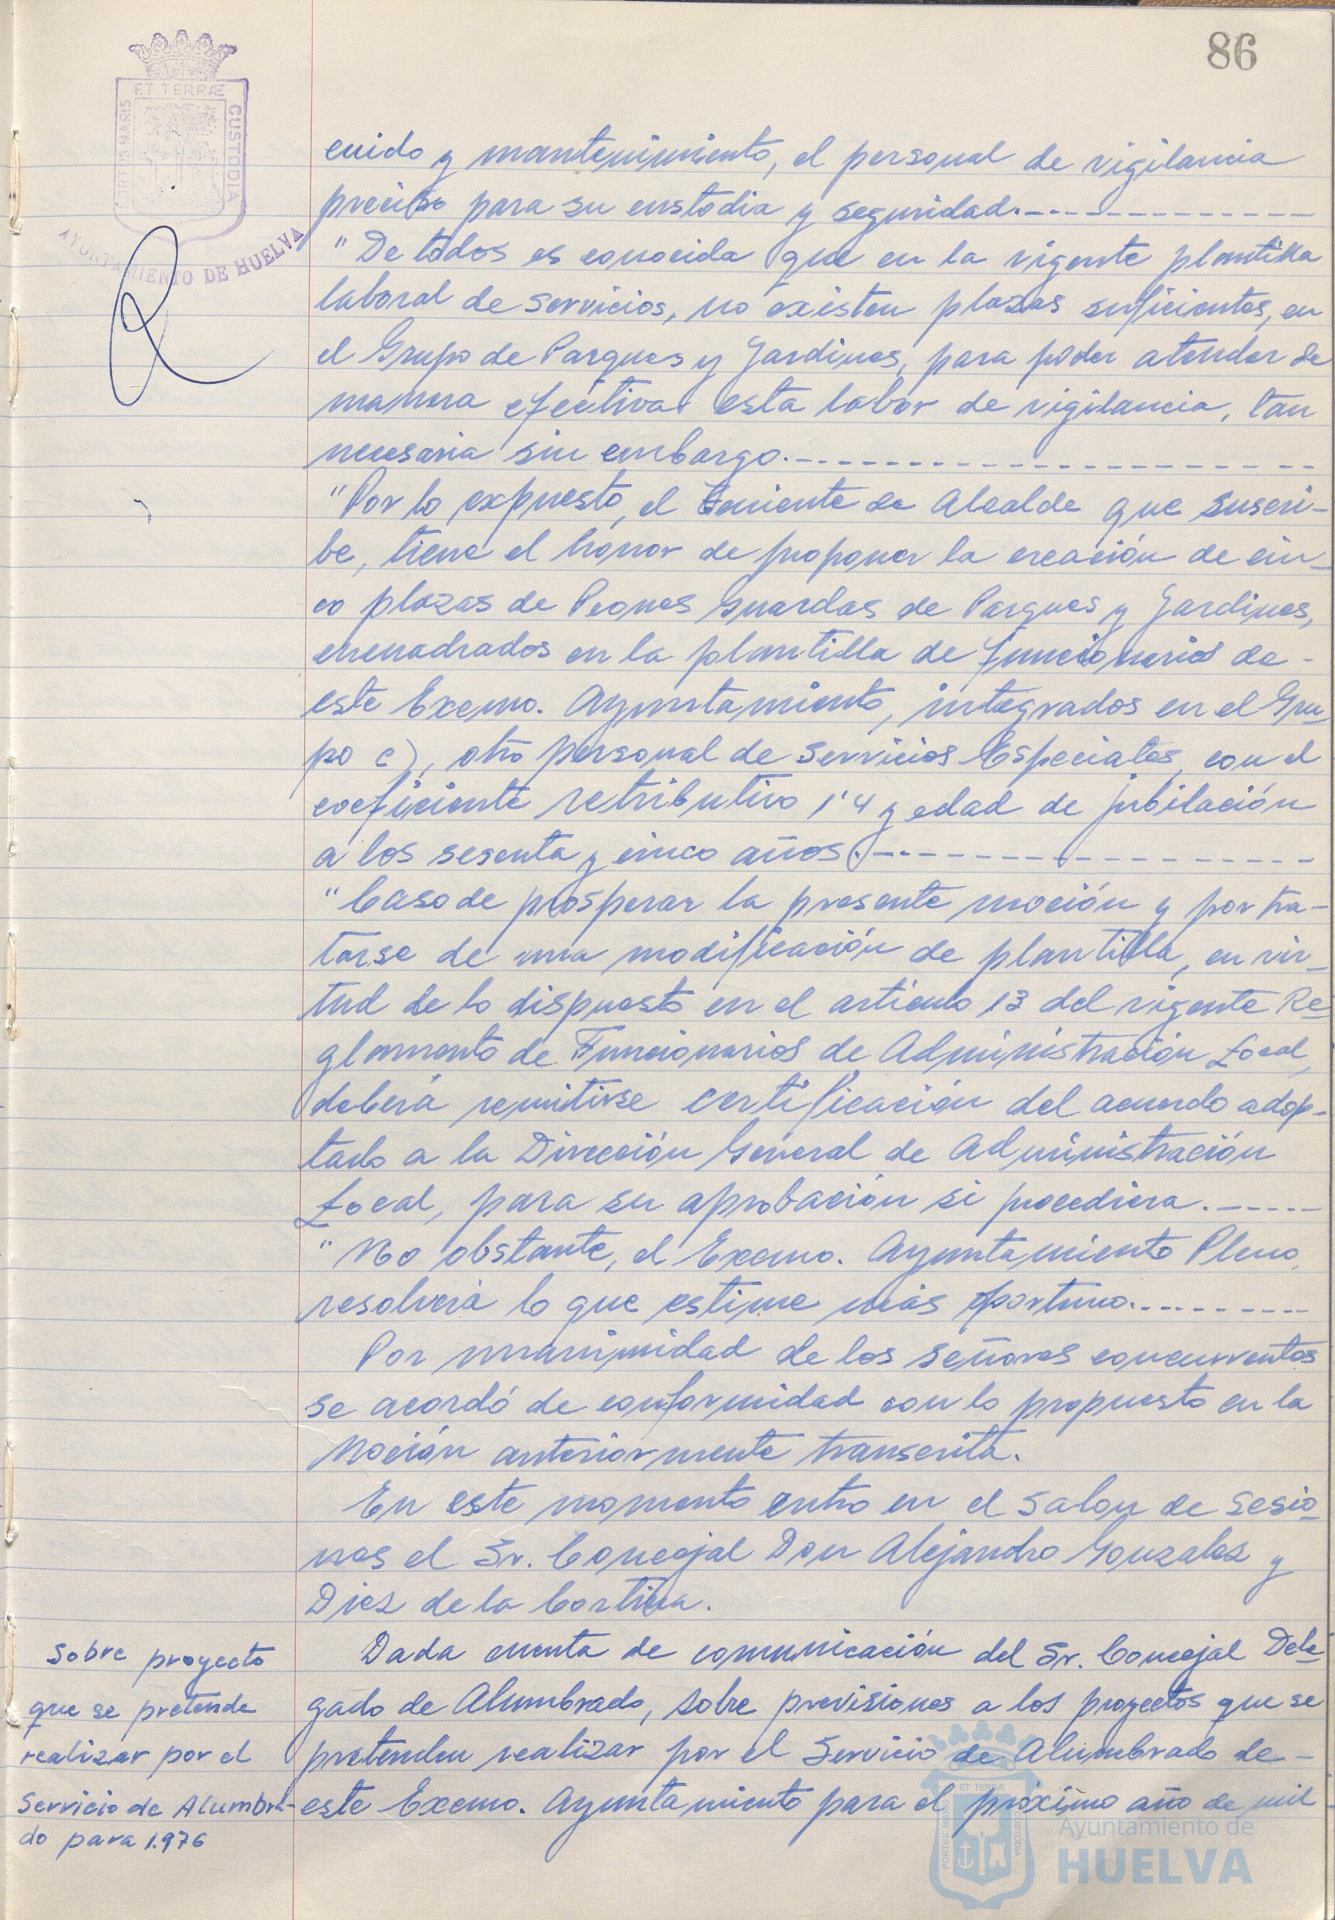 86
ET TERRÆ
PORTUS MARIS
CUSTODIA
AYUNTAMIENTO DE HUELVA
cuido y mantenimiento, el personal de vigilancia
preciso para su custodia y seguridad.
"De todos es conocida que en la vigente plantilla
laboral de servicios, no existen plazas suficientes, en
el Grupo de Parques y Jardines, para poder atender de
manera efectiva esta labor de vigilancia, tan
necesaria sin embargo.
"Por lo expuesto, el Teniente de Alcalde que suscri-
be, tiene el honor de proponer la creación de cin-
co plazas de Peones guardas de Parques y Jardines,
encuadrados en la plantilla de funcionarios de-
este Excmo. Ayuntamiento, integrados en el Gru-
po c), otro personal de Servicios Especiales, con el
coeficiente retributivo 1'4 y edad de jubilación
a los sesenta y cinco años.
"Caso de prosperar la presente moción y por tra-
tarse de una modificación de plantilla, en vir-
tud de lo dispuesto en el artículo 13 del vigente Re-
glamento de Funcionarios de Administración Local,
deberá remitirse certificación del acuerdo adop-
tado a la Dirección General de Administración
Local, para su aprobación si procediera.
"No obstante, el Excmo. Ayuntamiento Pleno,
resolverá lo que estime más oportuno.
Por unanimidad de los señores concurrentes
se acordó de conformidad con lo propuesto en la
Moción anteriormente transcrita.
En este momento entro en el Salon de Sesio-
nes el Sr. Concejal Don Alejandro Gonzalez y
Diez de la Cortina.
Sobre proyecto
que se pretende
realizar por el
Servicio de Alumbra-
do para 1.976
Dada cuenta de comunicación del Sr. Concejal Dele-
gado de Alumbrado, sobre previsiones a los proyectos que se
pretenden realizar por el Servicio de Alumbrado de-
este Excmo. Ayuntamiento para el próximo año de mil
ET TERRÆ
PORTUS MARIS
CUSTODIA
Ayuntamiento de
HUELVA